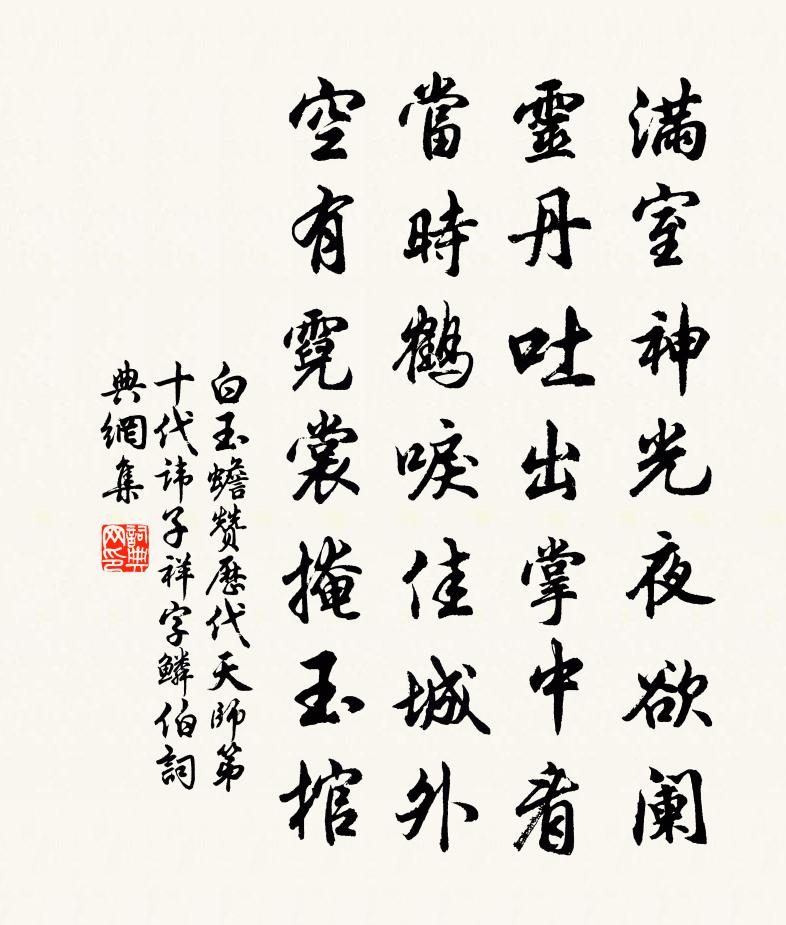 满室神光夜欲阑
靈丹吐出掌中看
當時鶴唳佳城外
空有霓裳掩玉棺
白玉蟾赞歷代天師第
十代諱子祥字鱗伯詞
典網集
詞典
网印